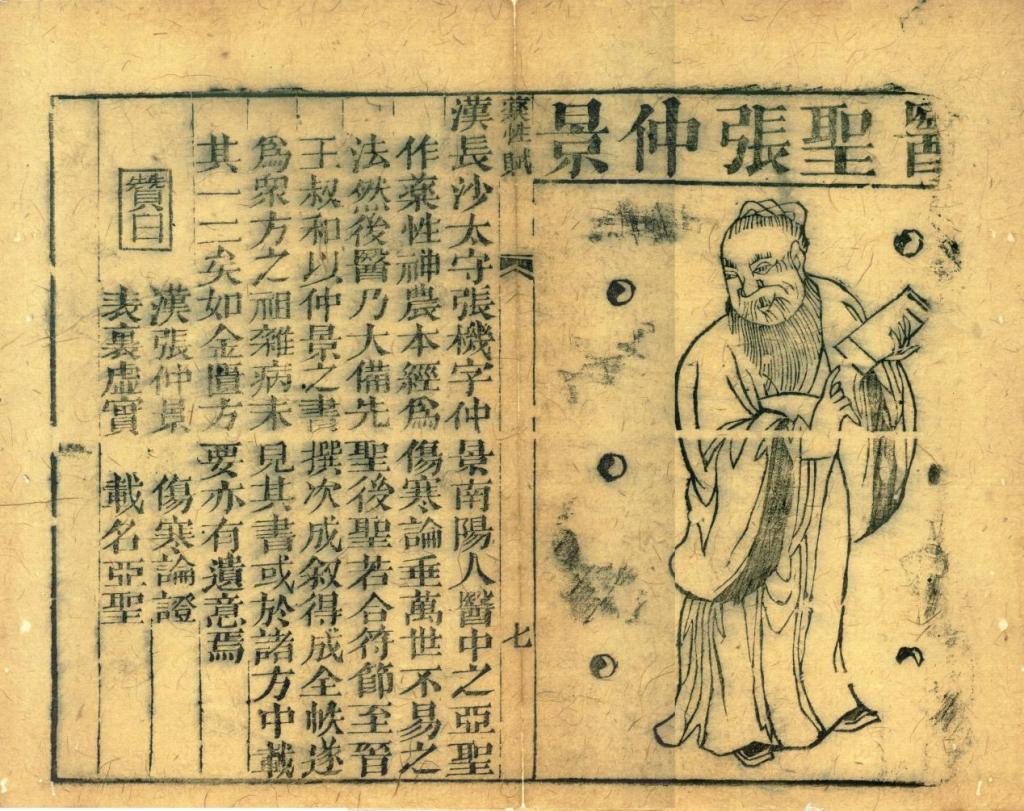 醫聖張仲景
薬性賦 七
漢長沙太守張機字仲景南陽人醫中之亞聖
作薬性神農本經爲傷寒論垂萬世不易之
法然後醫乃大備先聖後聖若合符節至晉
王叔和以仲景之書撰次成叙得成全帙遂
爲衆方之祖雜病未見其書或於諸方中載
其一二矣如金匱方要亦有遺意焉
贊曰
漢張仲景 傷寒論證
表裏虛實 載名亞聖